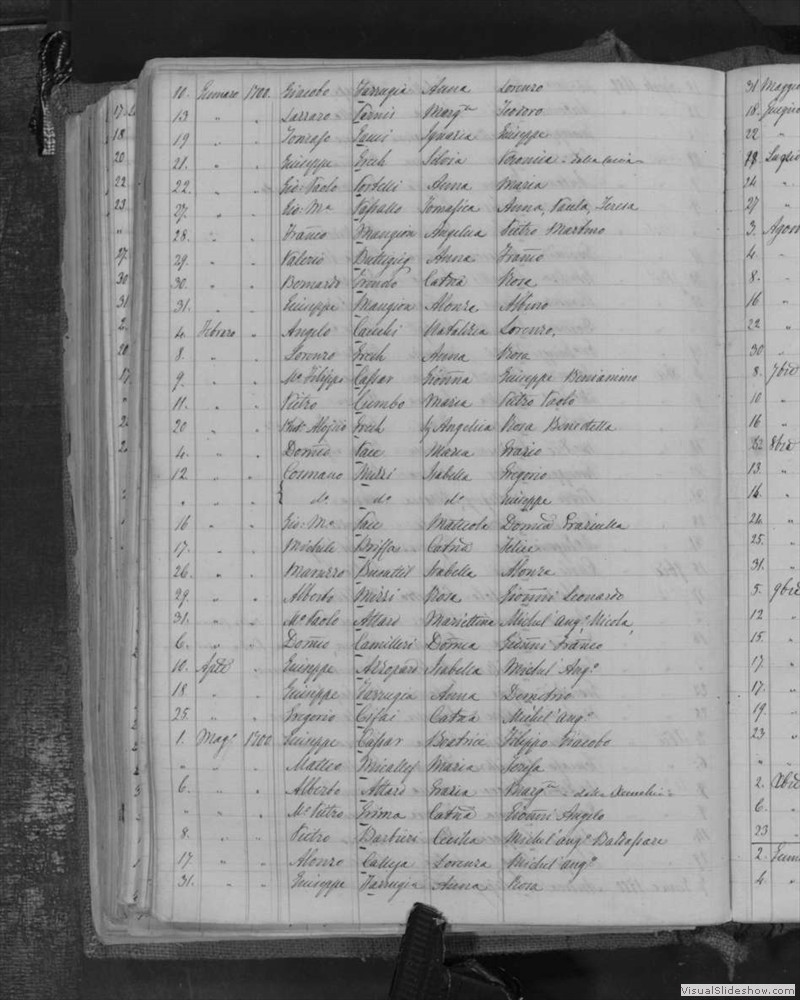 10. Gennaro 1700. Giacobo Farrugia Anna Lorenzo
13 " " Lazzaro Tornis Marg.ta Teodoro
19 " " Gonzalo Ignazia Giuseppe
21. " " Giuseppe Grech Silvia Veronica
22. " " Gio: Paolo Portelli Anna Maria
27. " " Gio: M.a Vassallo Tomasica Anna, Paula, Teresa
28. " " Franco Mangion Angelica Pietro Martino
29. " " Valerio Buttigieg Anna Franco
30. " " Bernardo Catna Rosa
31. " " Giuseppe Mangion Alonza Albino
4. Febraro " Angelo Cauchi Natalizia Lorenzo,
8. " " Lorenzo Grech Anna Rosa
9. " " M.o Filippo Caspar Gioanna Giuseppe Beniamino
11. " " Pietro Ciumbo Maria Pietro Paolo
20 " " Aloisio Grech Angelica Rosa Benedetta
4. " " Domco Pace Maria Grazio
12. " " Cosmano Mizzi Isabella Gregorio
" " " do do do Giuseppe
16 " " Gio: M.a Pace Matteola Domca Graziulla
17. " " Michele Briffa Catna Felice
26. " " Maruzzo Busuttil Isabella Alonza
29. " " Alberto Mizzi Rosa Gioanni Leonardo
31. " " M.o Paolo Attard Mariettina Michel' Ang.o Nicola
6. " " Domco Camilleri Domca Gioanni Franco
10. Aple " Giuseppe Azzopardi Isabella Michel' Ang.o
18. " " Giuseppe Farrugia Anna Demitrio
25. " " Gregorio Cifai Catna Michel' ang.o
1. Mag.o 1700 Giuseppe Caspar Beatrice Filippo Giacobo
" " " Matteo Micallef Maria Josefa
6. " " Alberto Attard Grazia Marg.ta
" " " M.o Pietro Grima Catna Gioanni Angelo
8. " " Pietro Barbieri Cecilia Michel' ang.o Baldassare
17. " " Alonzo Calleja Lorenza Michel' ang.o
31. " " Giuseppe Farrugia Anna Rosa
17.
18.
20
22
23
"
27.
30
31
2.
20
17.
31 Maggio
18. Giugno
22 "
18 Luglio
24 "
27 "
3. Agos
4. "
8. "
16 "
22 "
30 "
8. 7bre
10 "
16 "
12 8bre
13. "
16. "
24. "
25. "
31. "
5. 9bre
12 "
15. "
17. "
17. "
19. "
23 "
" "
2. Xbre
6. "
23 "
2. Genna
4. "
VisualSlideshow.com